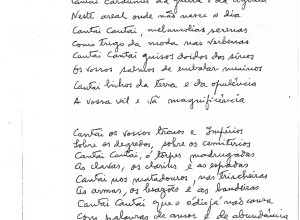 Neste areal onde não nasce o dia
Cantai Cantai, melancolias serenas
Como trigo da moda nas verbenas
Cantai Cantai guisos doidos dos sinos
Os vossos salmos de embalar meninos
Cantai bichos da terra e da opulência
A vossa vil e vã magnificência
Cantai os vossos tronos e Impérios
Sobre os degredos, sobre os cemitérios
Cantai Cantai, ó torpes madrugadas
As clavas, os clarins e as espadas
Cantai nos matadouros, nas trincheiras
As armas, os brazões e as bandeiras
Cantai Cantai que o ódio já não cansa
Com palavras de amor e de